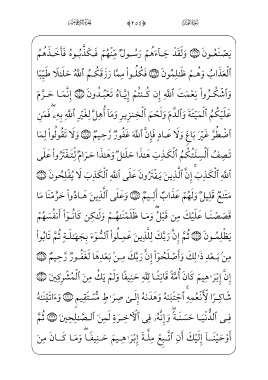 يَصْنَعُونَ ۝ وَلَقَدْ جَآءَهُمْ رَسُولٌ مِّنْهُمْ فَكَذَّبُوهُ فَأَخَذَهُمُ
ٱلْعَذَابُ وَهُمْ ظَٰلِمُونَ ۝ فَكُلُوا۟ مِمَّا رَزَقَكُمُ ٱللَّهُ حَلَٰلًا طَيِّبًا
وَٱشْكُرُوا۟ نِعْمَتَ ٱللَّهِ إِن كُنتُمْ إِيَّاهُ تَعْبُدُونَ ۝ إِنَّمَا حَرَّمَ
عَلَيْكُمُ ٱلْمَيْتَةَ وَٱلدَّمَ وَلَحْمَ ٱلْخِنزِيرِ وَمَآ أُهِلَّ لِغَيْرِ ٱللَّهِ بِهِۦ فَمَنِ
ٱضْطُرَّ غَيْرَ بَاغٍ وَلَا عَادٍ فَإِنَّ ٱللَّهَ غَفُورٌ رَّحِيمٌ ۝ وَلَا تَقُولُوا۟ لِمَا
تَصِفُ أَلْسِنَتُكُمُ ٱلْكَذِبَ هَٰذَا حَلَٰلٌ وَهَٰذَا حَرَامٌ لِّتَفْتَرُوا۟ عَلَى
ٱللَّهِ ٱلْكَذِبَ إِنَّ ٱلَّذِينَ يَفْتَرُونَ عَلَى ٱللَّهِ ٱلْكَذِبَ لَا يُفْلِحُونَ ۝
مَتَٰعٌ قَلِيلٌ وَلَهُمْ عَذَابٌ أَلِيمٌ ۝ وَعَلَى ٱلَّذِينَ هَادُوا۟ حَرَّمْنَا مَا
قَصَصْنَا عَلَيْكَ مِن قَبْلُ وَمَا ظَلَمْنَٰهُمْ وَلَٰكِن كَانُوٓا۟ أَنفُسَهُمْ
يَظْلِمُونَ ۝ ثُمَّ إِنَّ رَبَّكَ لِلَّذِينَ عَمِلُوا۟ ٱلسُّوٓءَ بِجَهَٰلَةٍ ثُمَّ تَابُوا۟
مِنۢ بَعْدِ ذَٰلِكَ وَأَصْلَحُوٓا۟ إِنَّ رَبَّكَ مِنۢ بَعْدِهَا لَغَفُورٌ رَّحِيمٌ ۝
إِنَّ إِبْرَٰهِيمَ كَانَ أُمَّةً قَانِتًا لِّلَّهِ حَنِيفًا وَلَمْ يَكُ مِنَ ٱلْمُشْرِكِينَ ۝
شَاكِرًا لِّأَنْعُمِهِ ٱجْتَبَىٰهُ وَهَدَىٰهُ إِلَىٰ صِرَٰطٍ مُّسْتَقِيمٍ ۝ وَءَاتَيْنَٰهُ
فِى ٱلدُّنْيَا حَسَنَةً وَإِنَّهُۥ فِى ٱلْءَاخِرَةِ لَمِنَ ٱلصَّٰلِحِينَ ۝ ثُمَّ
أَوْحَيْنَآ إِلَيْكَ أَنِ ٱتَّبِعْ مِلَّةَ إِبْرَٰهِيمَ حَنِيفًا وَمَا كَانَ مِنَ